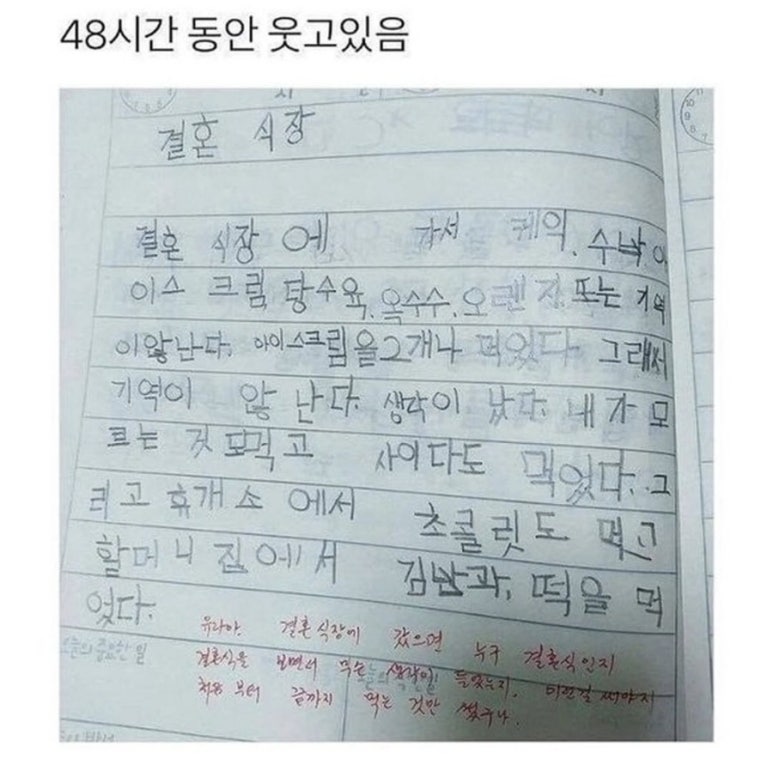 48시간 동안 웃고있음
결혼 식장
결혼 식장 에 가서 케익, 수박 아
이스 크림, 탕수육, 옥수수, 오렌지, 또는 기억
이않난다. 아이스크림을2개나 먹었다. 그래서
기억이 않 난다. 생각이 났다. 내가 모
르는 것 도먹고 사이다도 먹었다. 그
리고 휴개소 에서 초콜릿도 먹고
할머니 집에서 김반과, 떡을 먹
었다.
유라야. 결혼식장에 갔으면 누구 결혼식인지
결혼식을 보면서 무슨 생각이 들었는지. 이런걸 써야지
처음 부터 끝까지 먹는 것만 썼구나.
오늘의 중요한 일